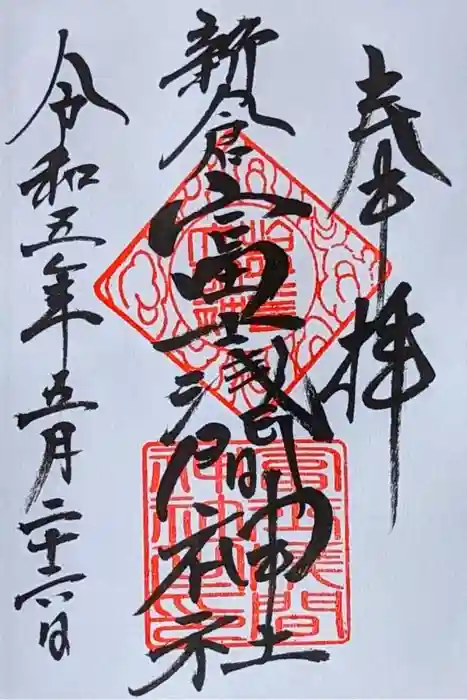 奉拝
新倉富士浅間神社
令和五年五月二十六日